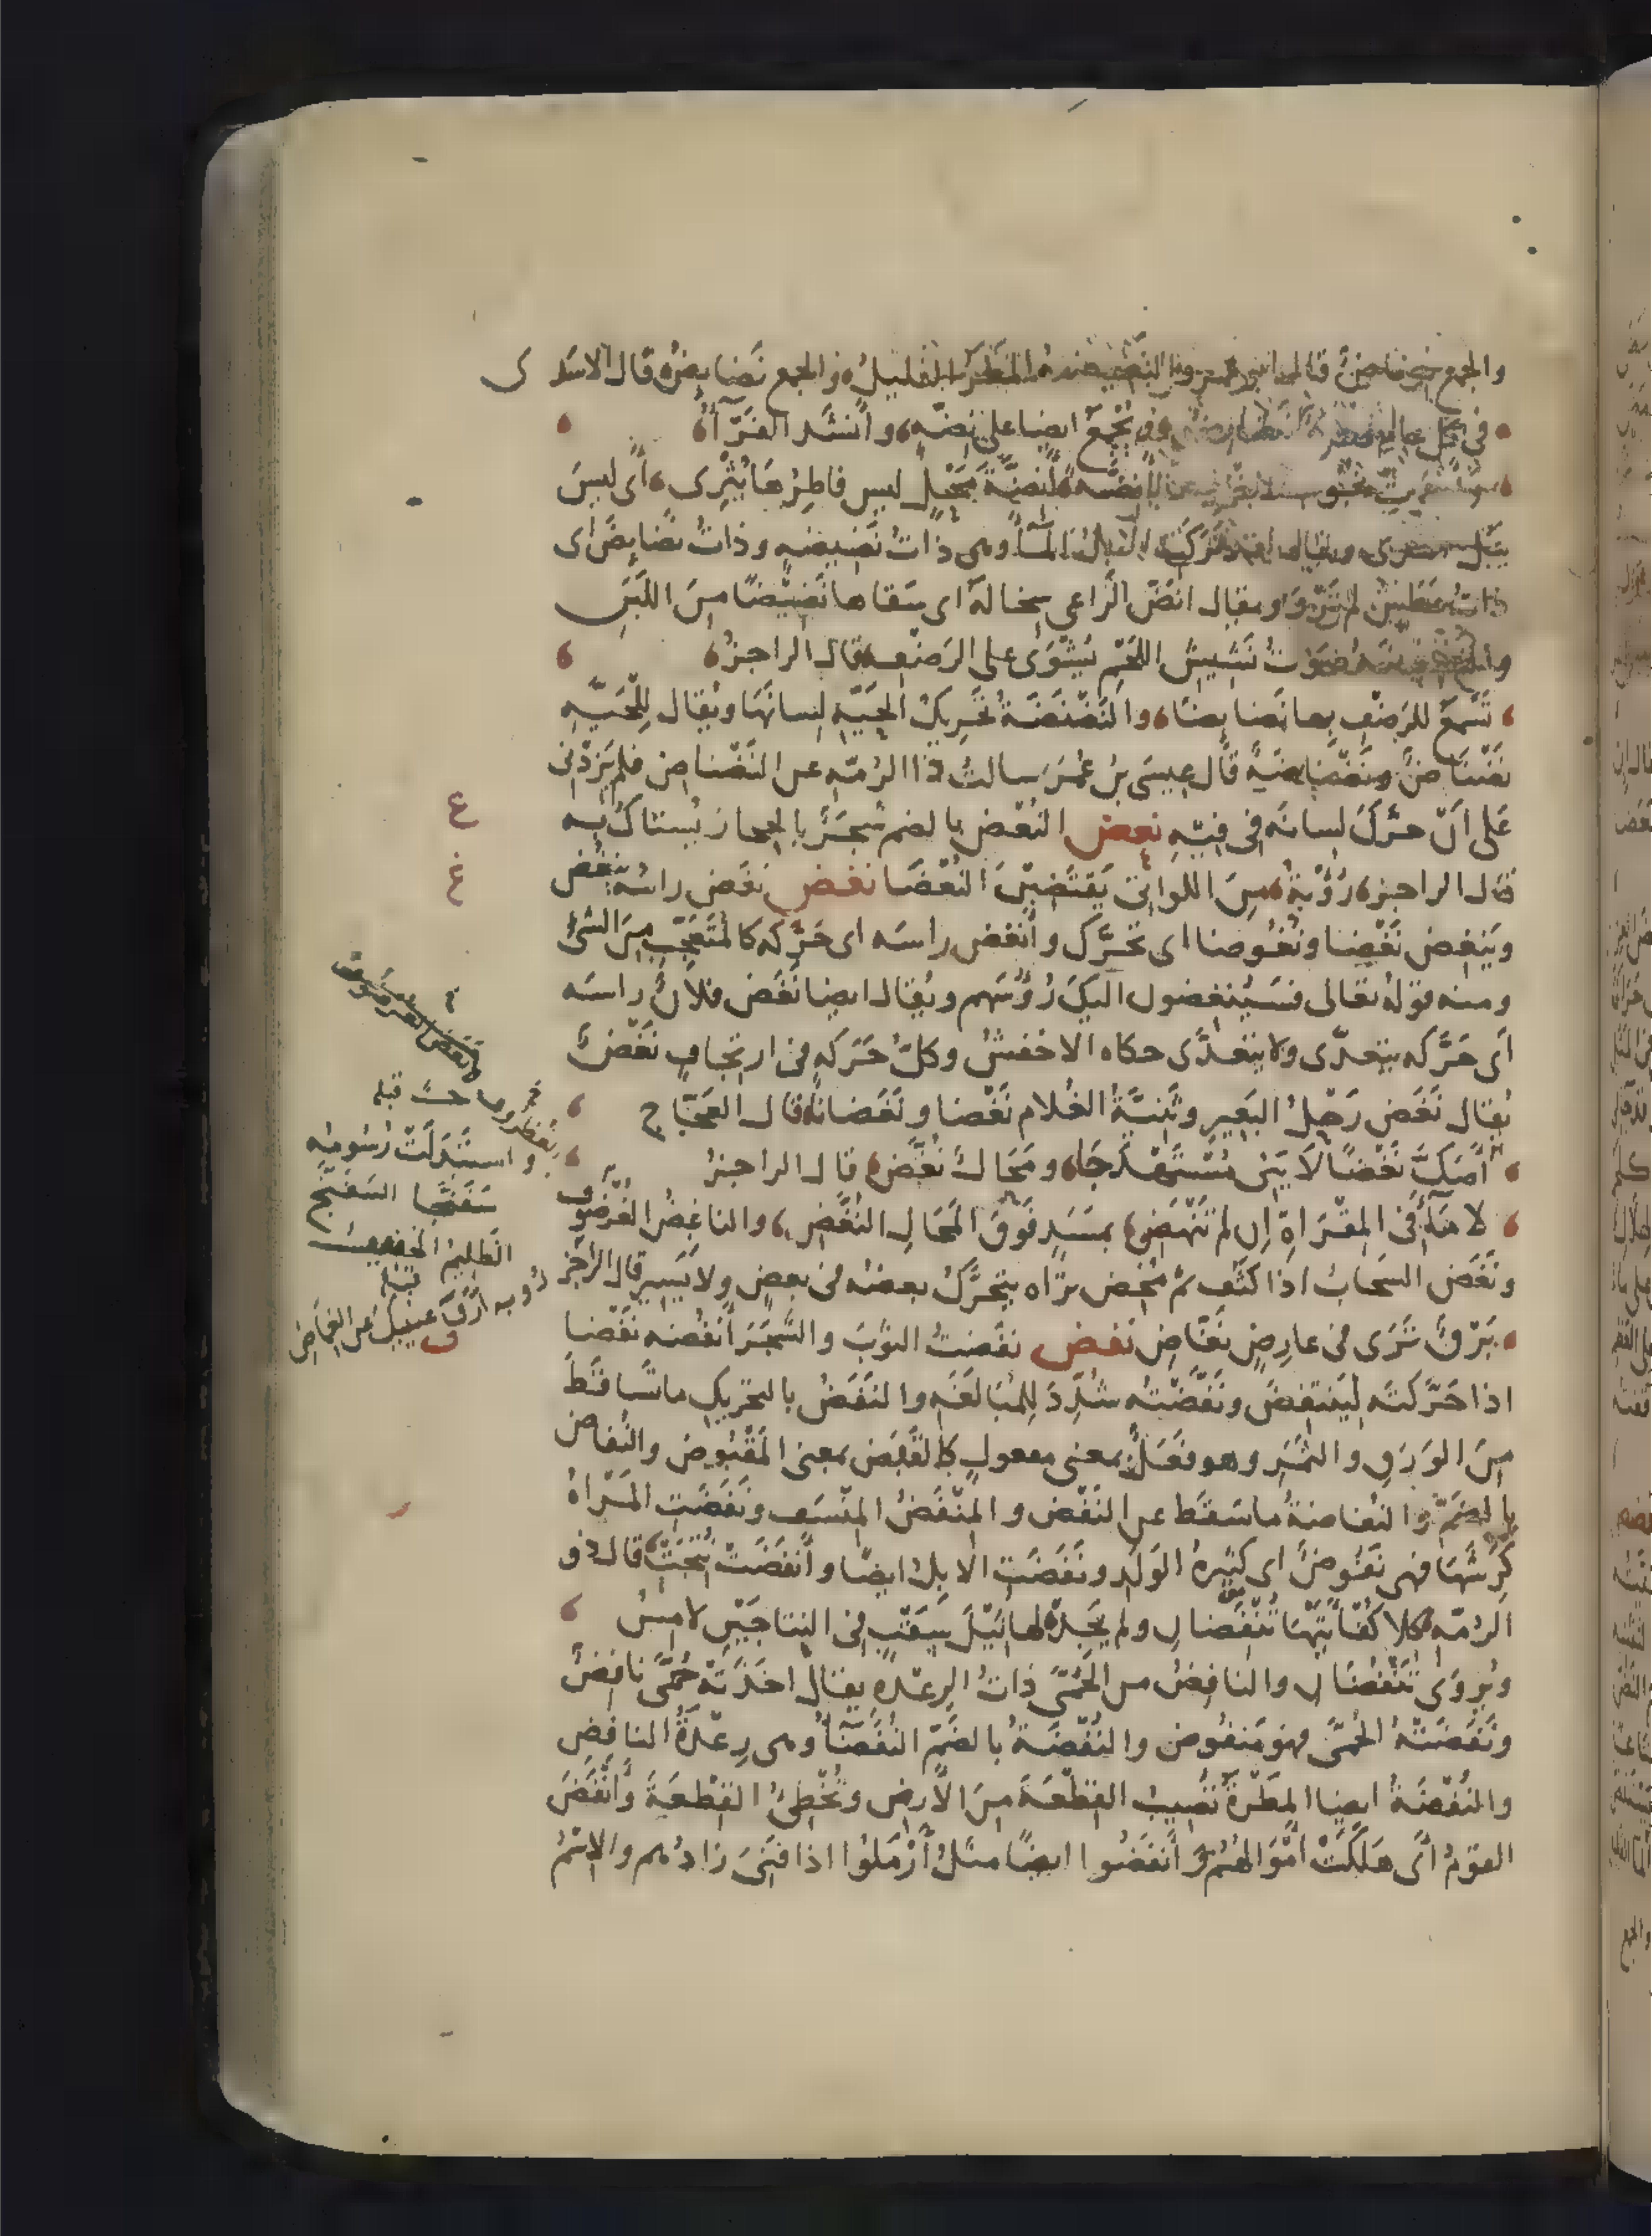 والجمع نضائض قال ابو عمرو النضيضة المطر القليل والجمع نضايض قال الاسدى
فى كل عام قطره نضايض وقد تجمع ايضا على نضه وانشد الفرا
بانضه لنضه محل ليس قاطرها يثرى اى ليس
يبل الثرى ويقال لقد تركت الابل الما وهى ذات نضيضه وذات نضايض اى
ذات عطش لم ترو ويقال انض الراعى سخاله اى سقاها نضيضا من اللبن
صوت نشيش اللحم يشوى على الرضف قال الراجز
تسمع للرضف بها نضايضا والنضنضة تحريك الحية لسانها ويقال للحيه
نضناض ونضناضة قال عيسى بن عمر سالت ذا الرمه عن النضناض فلم يزدنى
على ان حرك لسانه فى فيه نعض النعض بالضم شجر بالحجاز يستاك به
قال الراجز رؤبة من اللواتى يقتضبن النعضا نغض نغض راسه ينغض
وينغض نغضا ونغوضا اى تحرك وانغض راسه اى حركه كالمتعجب من الشئ
ومنه قوله تعالى فسينغضون اليك رؤسهم ويقال ايضا نغض فلان راسه
اى حركه يتعدى ولا يتعدى حكاه الاخفش وكل حركه فى ارتجاف نغض
يقال نغض رحل البعير وثنية الغلام نغضا ونغضانا قال العجاج
اصك نغضا لا ينى مستهدجا ومحال نغض قال الراجز
لا ماء فى المقراة ان لم تنهض بمسد فوق المحال النغض والناغض الغرضوف
ونغض السحاب اذا كثف ثم مخض تراه يتحرك بعضه فى بعض ولا يسير قال الراجز
برق ترى فى عارض نغاض نفض نفضت الثوب والشجر انفضه نفضا
اذا حركته لينتفض ونفضته شدد للمبالغه والنفض بالتحريك ما تساقط
من الورق والثمر وهو فعل بمعنى مفعول كالقبض بمعنى المقبوض والنفاض
بالضم والنفاضة ما سقط عن النفض والمنفض المنسف ونفضت المراة
كرشها فهى نفوض اى كثيرة الولد ونفضت الابل ايضا وانفضت نتجت قال ذو
الرمه كلا كفأتيها تنفضان ولم يجد لها ثيل سقب فى النتاجين لامس
ويروى تنفضان والنافض من الحمى ذات الرعده يقال اخذته حمى نافض
ونفضته الحمى فهو منفوض والنفضة بالضم النفضاء وهى رعدة النافض
والنفضة ايضا المطرة تصيب القطعة من الارض وتخطئ القطعة وانفض
القوم اى هلكت اموالهم وانفضوا ايضا مثل ارملوا اذا فنى زادهم والاسم
ع
غ
واستبدلت رسومه
سفنجا السفنج
الظليم الخفيف
قبله
ف